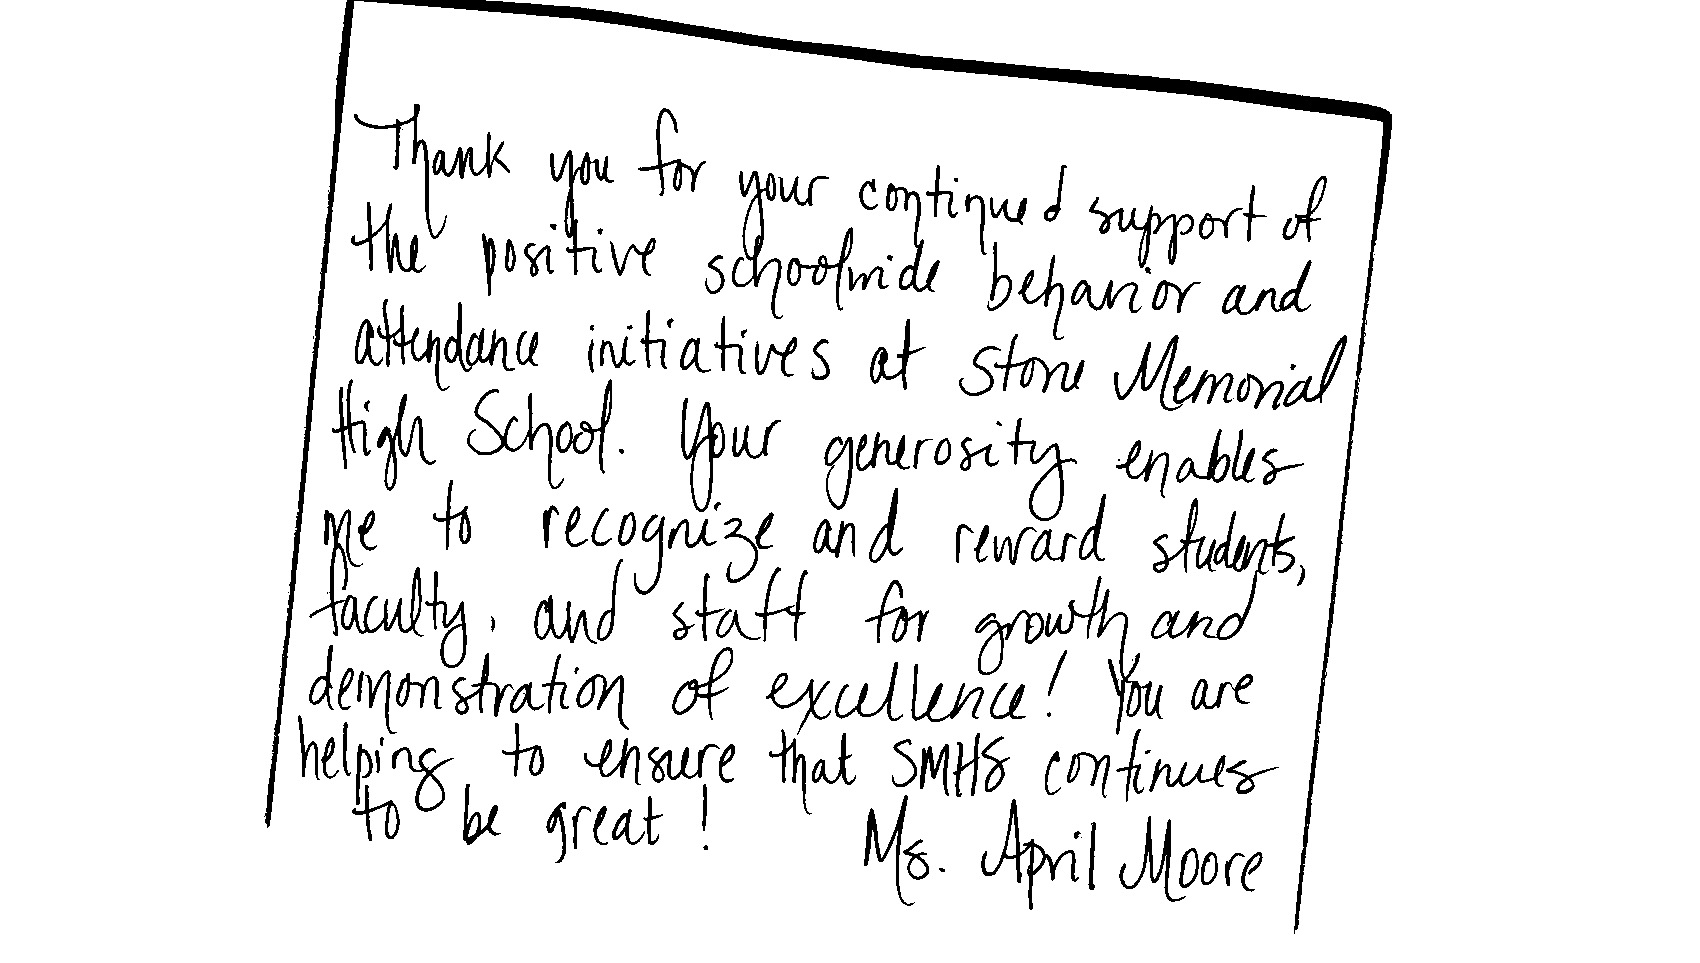 Thank you for your continued support of
the positive schoolwide behavior and
attendance initiatives at Stone Memorial
High School. Your generosity enables
me to recognize and reward students,
faculty, and staff for growth and
demonstration of excellence! You are
helping to ensure that SMHS continues
to be great!
Ms. April Moore